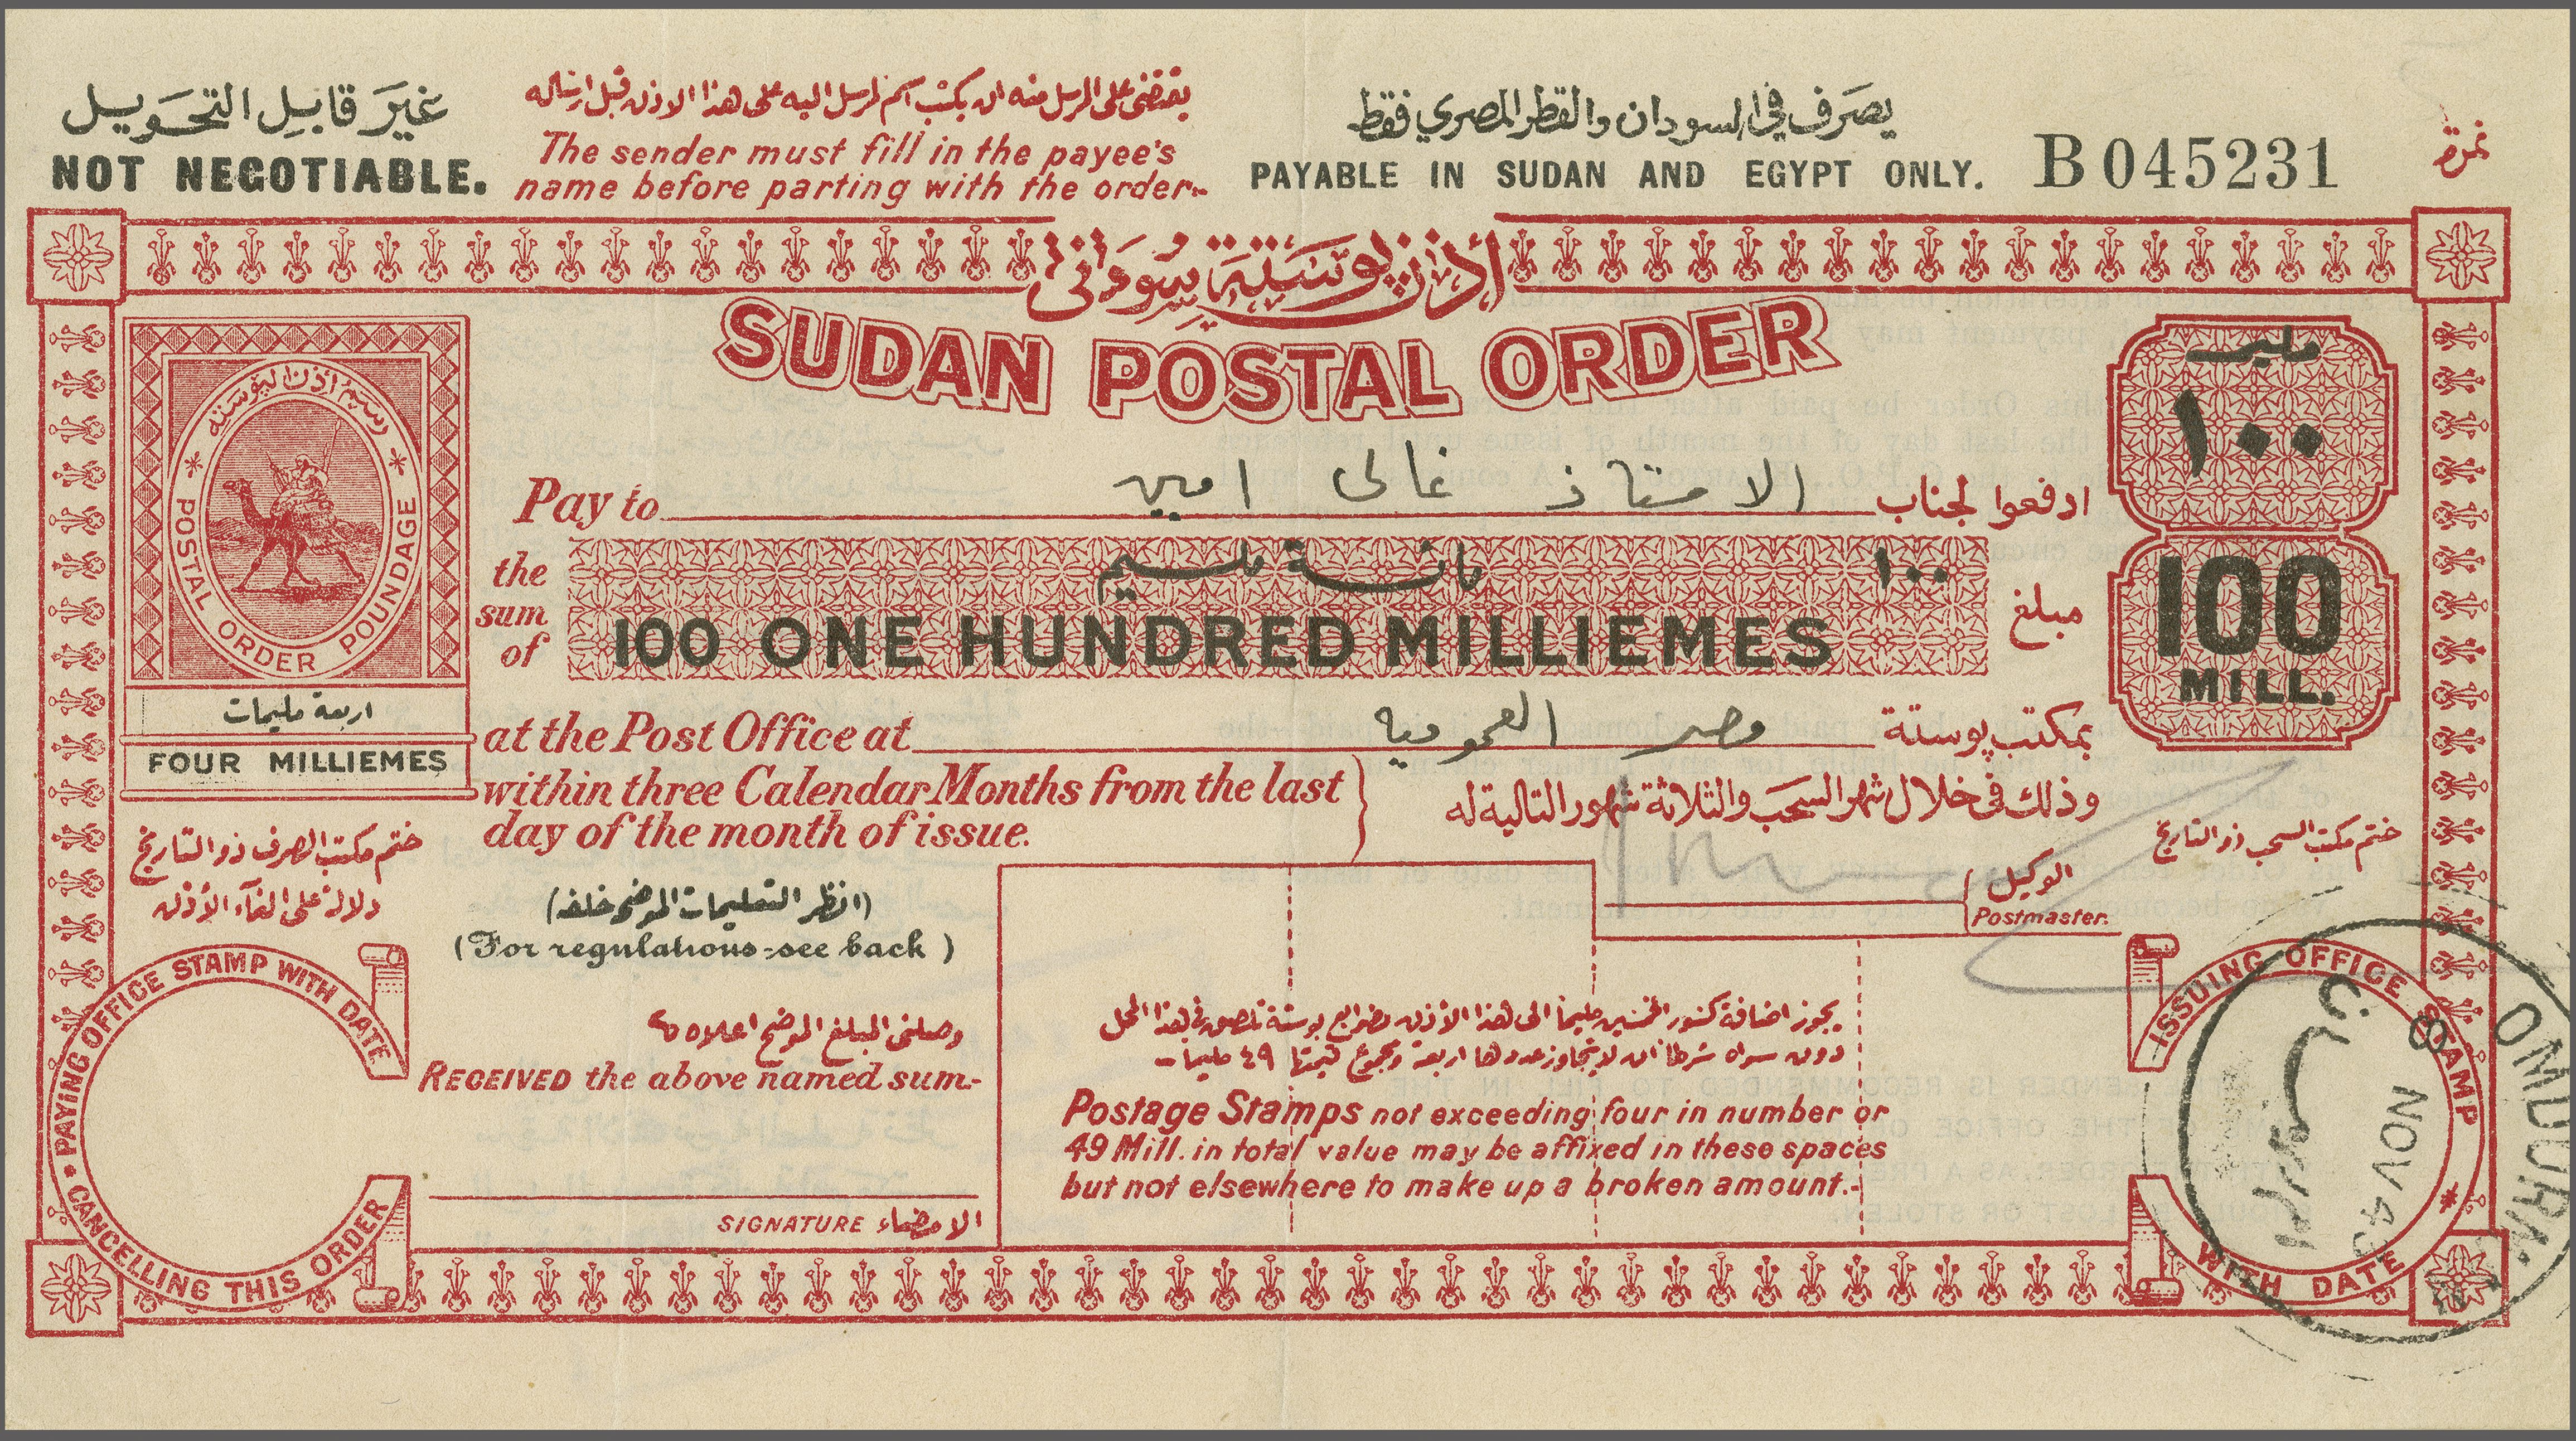 غير قابل التحويل
NOT NEGOTIABLE.
يقتضى على المرسل منه ان يكتب اسم المرسل اليه على هذا الاذن قبل ارساله
The sender must fill in the payee's
name before parting with the order.-
يصرف في السودان والقطر المصري فقط
PAYABLE IN SUDAN AND EGYPT ONLY.
B 045231
نمرة
أذن پوستة سودانى
SUDAN POSTAL ORDER
رسم أذن البوسته
POSTAL ORDER POUNDAGE
اربعة مليمات
FOUR MILLIEMES
مليم
١٠٠
100
MILL.
Pay to الاستاذ غالى امين ادفعوا لجناب
the
sum
of
مائة مليم ١٠٠
100 ONE HUNDRED MILLIEMES
مبلغ
at the Post Office at مصر العمومية بمكتب پوستة
within three Calendar Months from the last
day of the month of issue.
وذلك فى خلال شهر السحب والثلاثة شهور التالية له
ختم مكتب الصرف ذو التاريخ
دلالة على الغآء الأذن
ختم مكتب السحب ذو التاريخ
(انظر التعليمات الموضح خلفه)
(For regulations-see back )
الوكيل
Postmaster.
PAYING OFFICE STAMP WITH DATE
CANCELLING THIS ORDER
وصلنى المبلغ الموضح اعلاه
RECEIVED the above named sum.-
SIGNATURE الامضاء
يجوز اضافة كسور الخمسين مليما الى هذا الأذن بضوابع بوستة تلصق فى هذا المحل
دون سواه شرط ان لا يتجاوز عددها اربعة ومجموع قيمتها ٤٩ مليما
Postage Stamps not exceeding four in number or
49 Mill. in total value may be affixed in these spaces
but not elsewhere to make up a broken amount.-
ISSUING OFFICE STAMP
WITH DATE
OMDURMAN
8
NOV 43